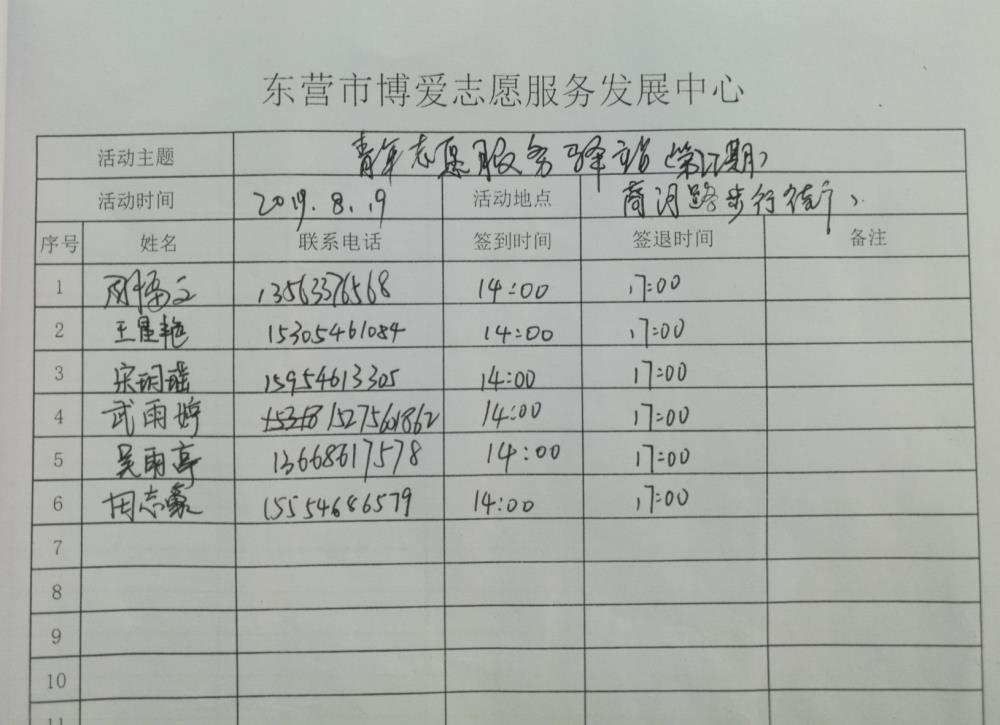 东营市博爱志愿服务发展中心
活动主题 青年志愿服务驿站(第 期)
活动时间 2019.8.19 活动地点 商河路步行街
序号 姓名 联系电话 签到时间 签退时间 备注
1 13563376568 14:00 17:00
2 王星艳 15305461084 14:00 17:00
3 宋玥瑶 15954613305 14:00 17:00
4 武雨婷 15275601862 14:00 17:00
5 吴雨亭 13668617578 14:00 17:00
6 田志豪 15554686579 14:00 17:00
7
8
9
10
11